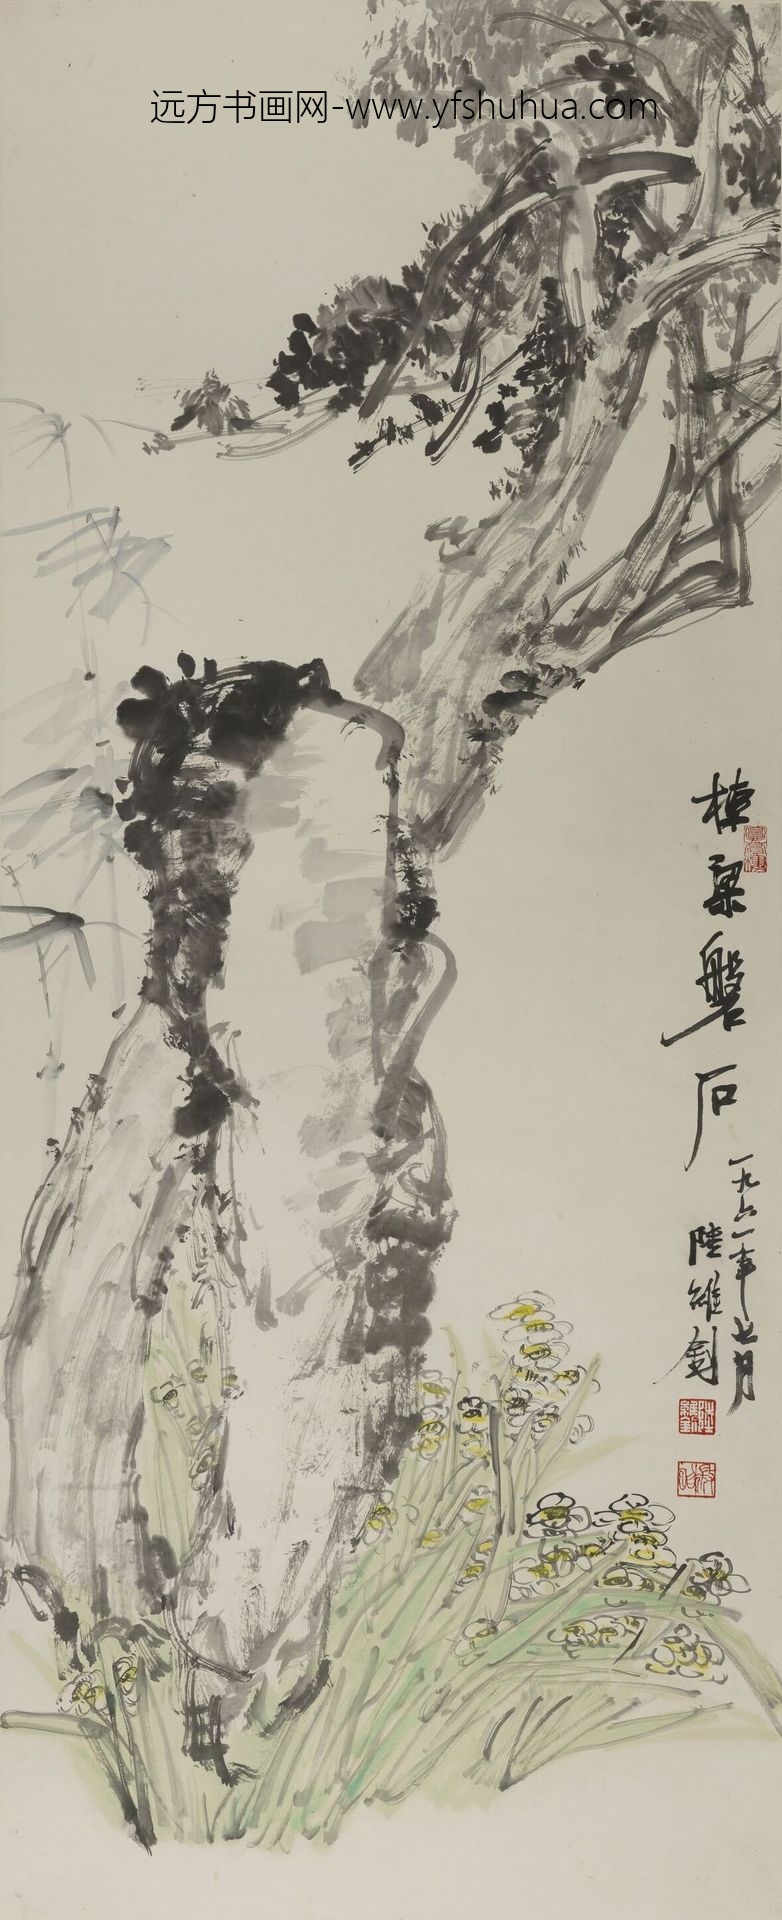 远方书画网-www.yfshuhua.com
棟梁磐石
一九六一年七月
陸維釗